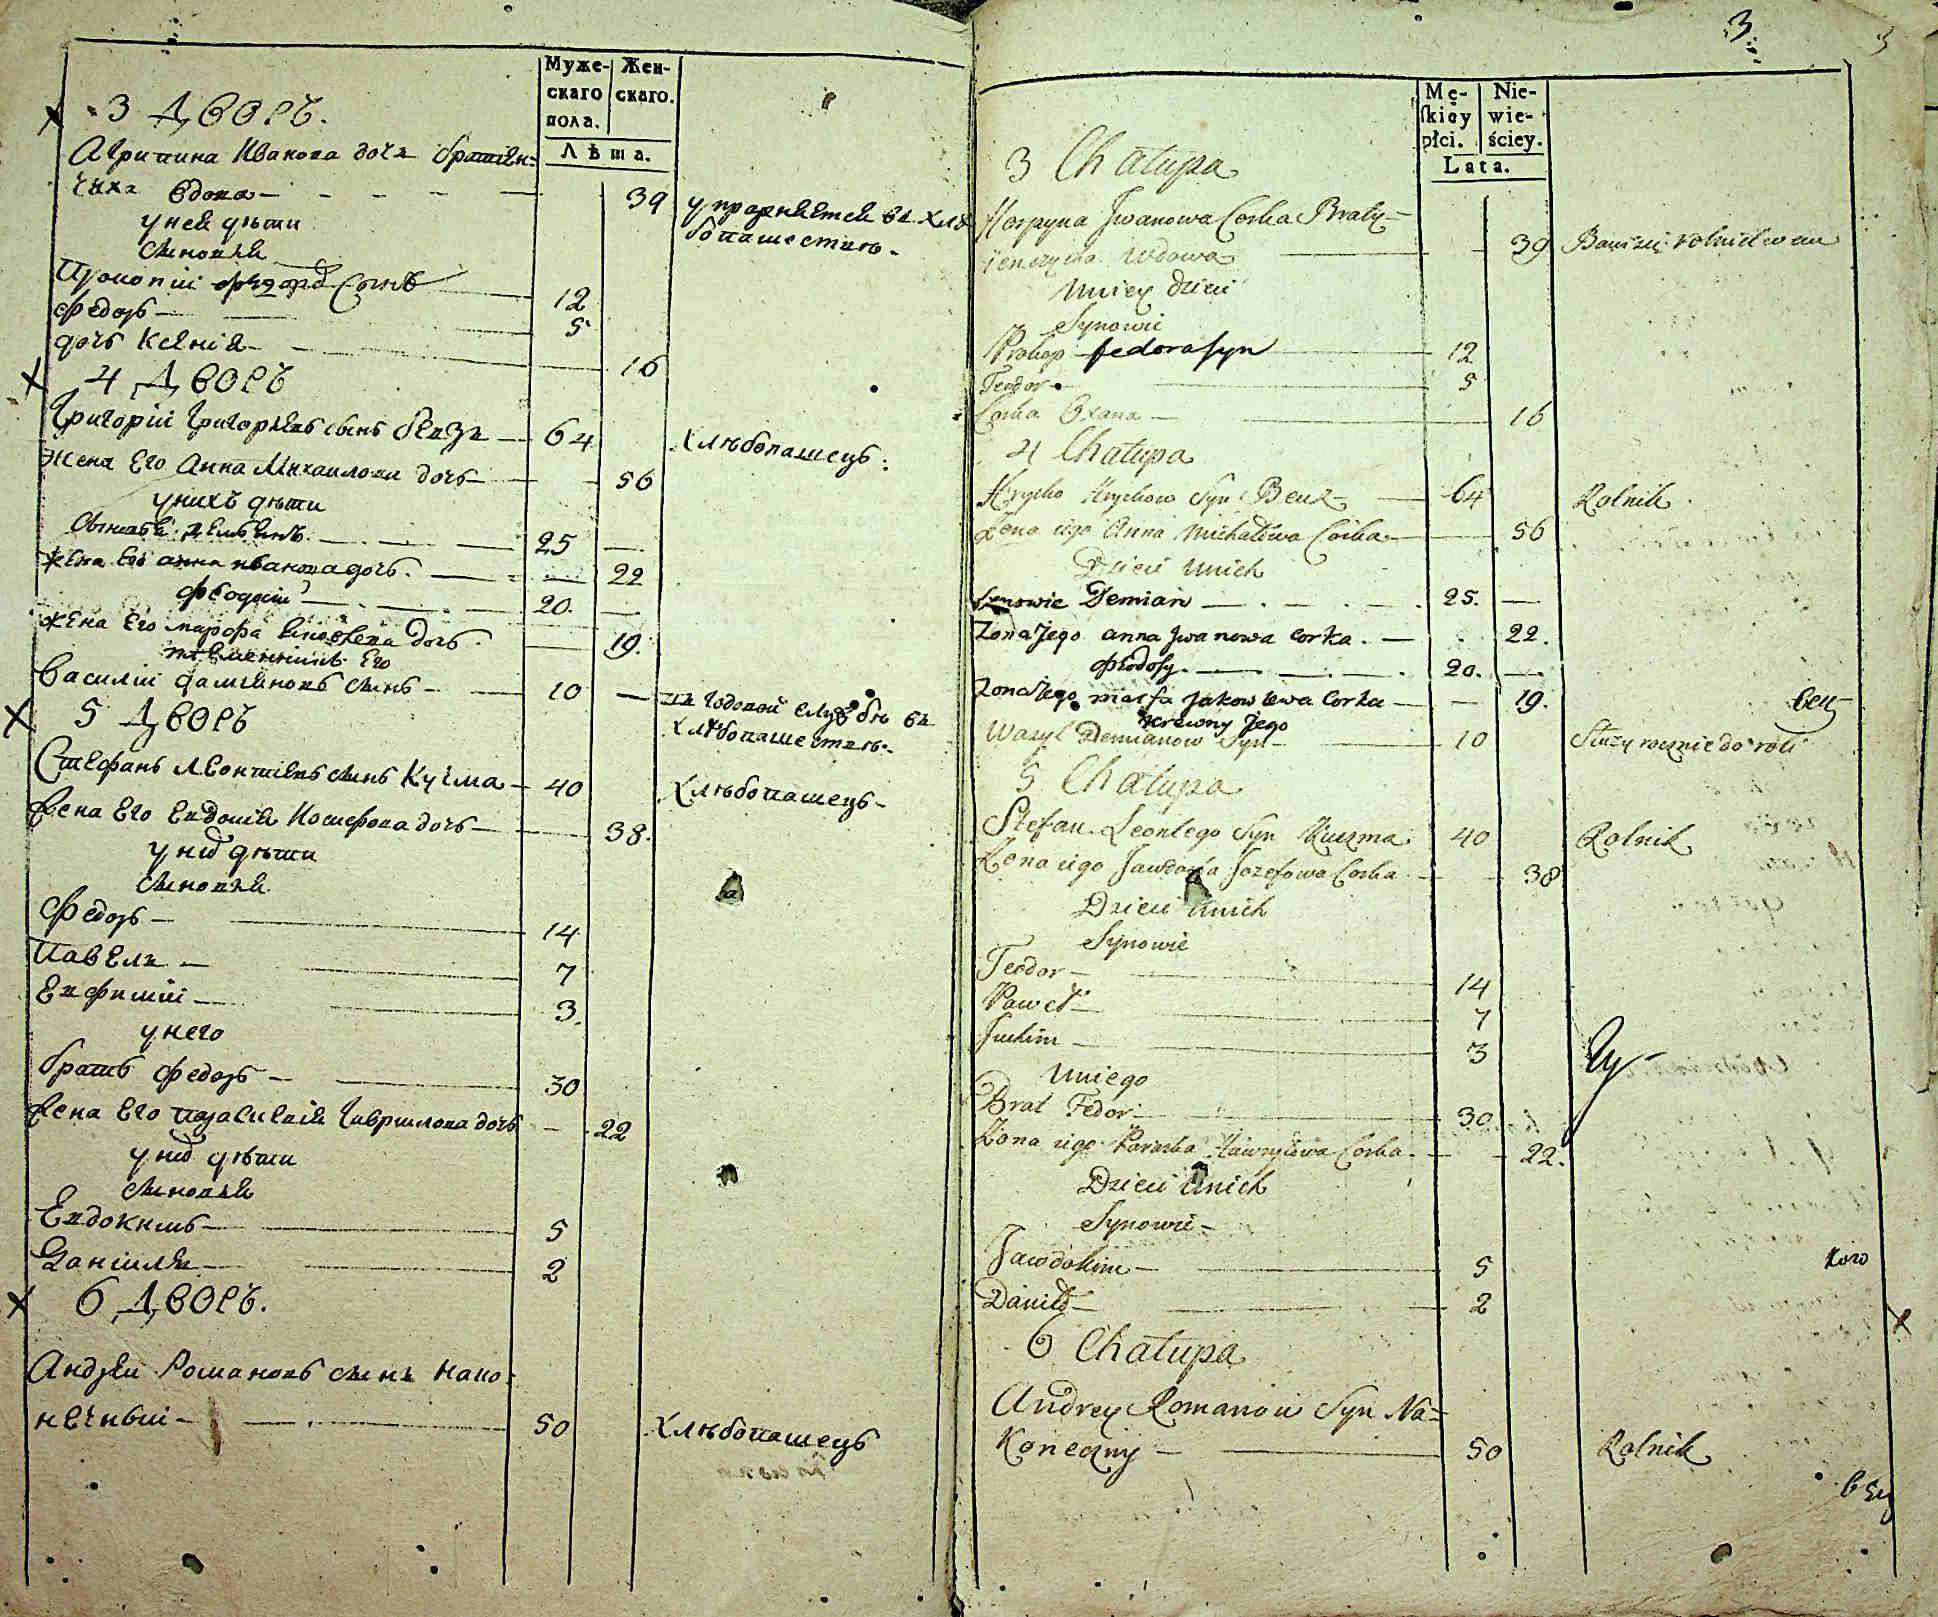 Муже-
скаго
пола.
Жен-
скаго.
Лѣта.
3 Дворъ.
Агрипина Иванова дочь братиен-
чиха вдова — 39 упражняется въ хлѣ
бопашествѣ.
у ней дѣти
сыновья
Прокопій федора сынъ — 12
Федоръ — 5
дочь Ксенія — 16
4 Дворъ
Григорій Григорьевъ сынъ — 64 хлѣбопашецъ.
Жена Его Анна Михаилова дочь — 56
у нихъ дѣти
сыновья Демьянъ — 25 —
жена Его анна иванова дочь — 22
феодосій — 20. —
жена Его марфа Яковлева дочь — 19.
племянникъ Его
Василій Дамияновъ сынъ — 10 — въ годовой службѣ въ
хлѣбопашествѣ.
5 Дворъ
Стефанъ Леонтиевъ сынъ Кучма — 40 хлѣбопашецъ —
Жена Его Евдокія Иосифова дочь — 38.
у нихъ дѣти
сыновья
Федоръ — 14
Павелъ — 7
Евфимій — 3.
у него
братъ Федоръ — 30
Жена Его Параскевія Гаврилова дочь — 22
у нихъ дѣти
сыновья
Евдокимъ — 5
Даніилъ — 2
6 Дворъ.
Андрей Романовъ сынъ Нако-
нечный — 50 Хлѣбопашецъ
3
Mę-
skiey
płci.
Nie-
wie-
ściey.
Lata.
3 Chałupa
Horpyna Jwanowa Corka Braty-
jenczycha Wdowa — 39 Bawi się rolnictwem
Uniey dzieci
Synowie
Prokop fedora syn — 12
Teodor — 5
Corka Oxana — 16
4 Chałupa
Hrycko Hryckow Syn — 64 Rolnik
Żona iego Anna Michałowa Corka — 56
Dzieci Unich
synowie Demian — 25. —
Zona Jego anna Jwanowa corka. — 22.
feodosy. — 20. —
zona Jego marfa Jakowlewa Corka — 19.
krewny Jego
Wasyl Demianow Syn — 10 Służy rocznie do roli
5 Chałupa
Stefan Leontego Syn Kuczma 40 Rolnik
Żona iego Jawdocha Jozefowa Corka — 38
Dzieci Unich
Synowie
Teodor — 14
Paweł — 7
Juchim — 3
Uniego
Brat Fedor — 30
Żona iego Paraska Hawryłowa Corka — 22.
Dzieci Unich
Synowie —
Jawdokim — 5
Daniło — 2
6 Chałupa
Andrey Romanow Syn Na-
koneczny — 50 Rolnik